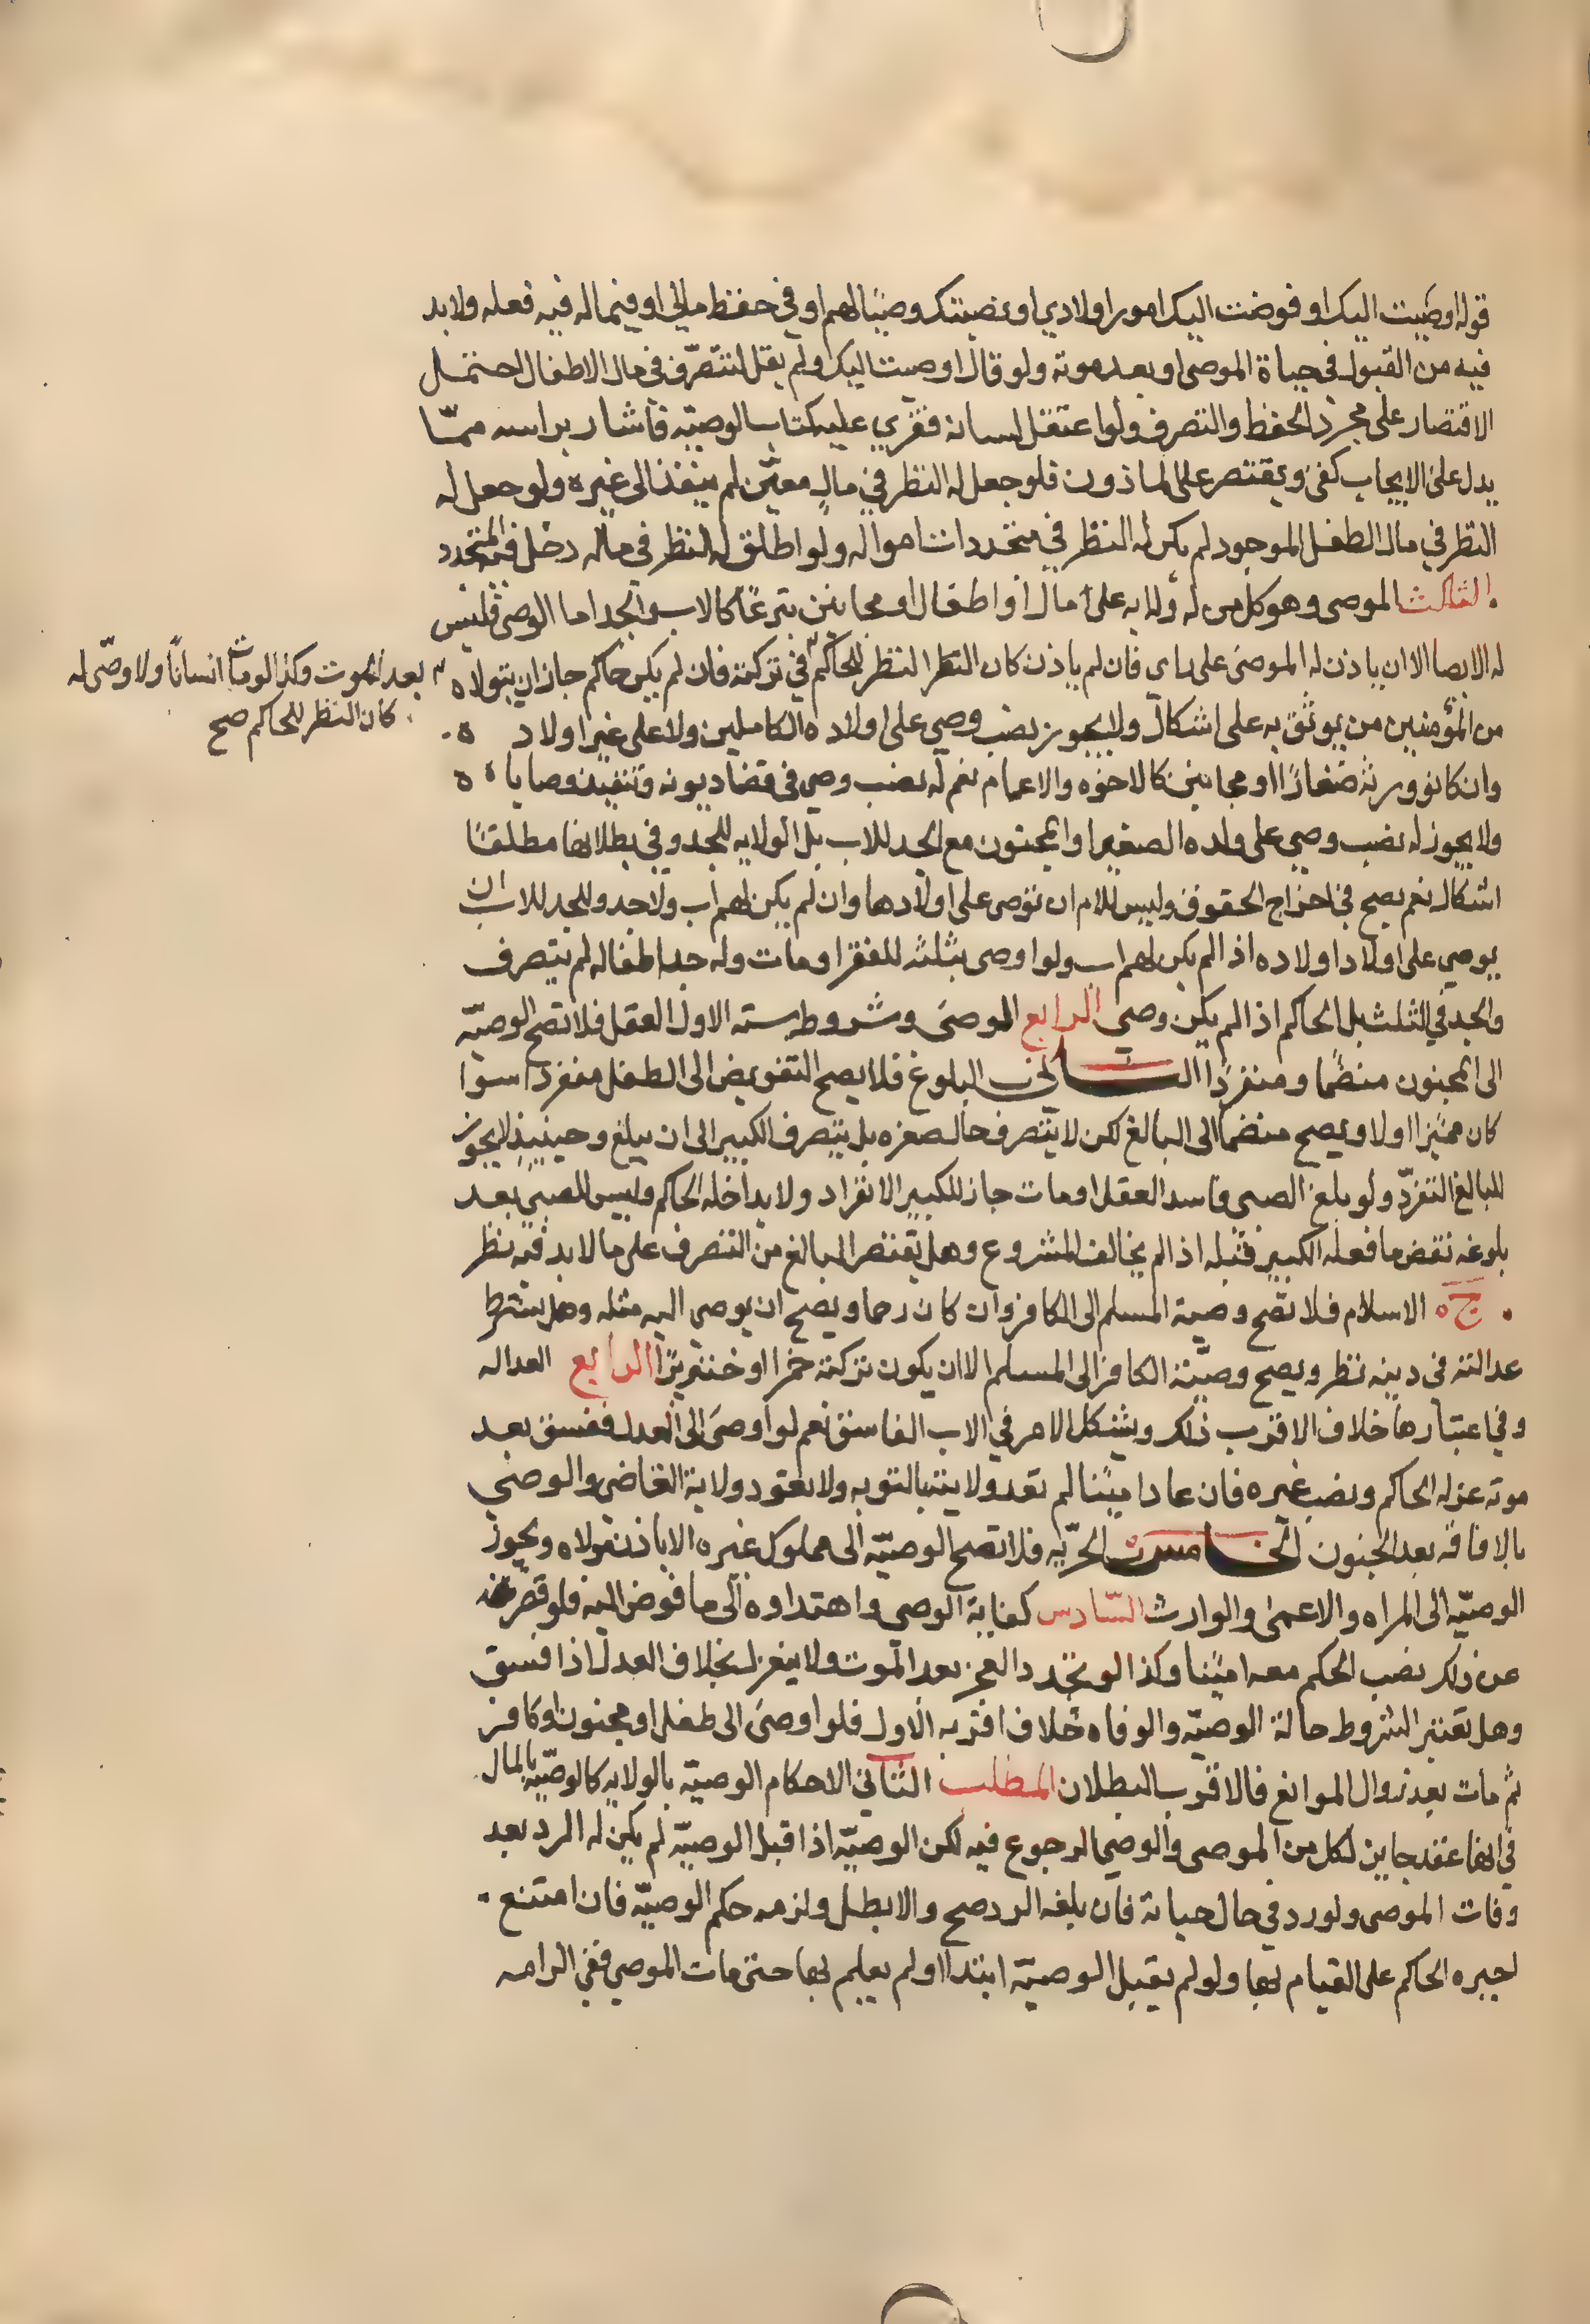 قوله اوصيت اليك او فوضت اليك امور اولادي او نصبتك وصيا لهم او في حفظ مالي او فيما له فيه فعله ولا بد
فيه من القبول في حياة الموصي او بعد موته ولو قال اوصيت اليك ولم يقل لتتصرف في مال الاطفال احتمل
الاقتصار على مجرد الحفظ والتصرف ولو اعتقل لسانه فقري عليه كتاب الوصيه فاشار براسه ممّا
يدل على الايجاب كفى ويقتصر على الماذون فلو جعل له النظر في مالٍ معيّن لم ينفذ الى غيره ولو جعل له
النظر في مال الطفل الموجود لم يكن له النظر في متجددات امواله ولو اطلق له النظر في ماله دخل المتجدد
الثالث الموصي وهو كل من له ولايه على مال او اطفال او مجانين شرعًا كالاب والجد اما الوصي فليس
له الايصا الا ان ياذن له الموصي على راي فان لم ياذن كان النظر النظر للحاكم في تركته فان لم يكن حاكم جاز ان يتولاه
بعد الموت وكذا لو مات انسانًا ولا وصّى له
كان النظر للحاكم صح
من المؤمنين من يوثق به على اشكال ولا يجوز نصب وصي على اولاده الكاملين ولا على غير اولاد ه
وان كانو ورثه صغارًا او مجانين كالاخوه والاعمام نعم له نصب وصي في قضا ديونه وتنفيذ وصاياه
ولا يجوز له نصب وصي على ولده الصغير او المجنون مع الجد للاب بل الولايه للجد وفي بطلانها مطلقا
اشكال نعم يصح في اخراج الحقوق وليس للام ان توصى على اولادها وان لم يكن لهم اب ولا جد وللجد للاب ان
يوصي على اولاد اولاده اذا لم يكن لهم اب ولو اوصى بثلثه للفقرا ومات وله جد اطفاله لم يتصرف
والجد في الثلث بل الحاكم اذا لم يكن وصي الرابع الموصى وشروطه سته الاول العقل فلا تصح الوصيّه
الى المجنون منضمًا ومنفردًا الثاني البلوغ فلا يصح التفويض الى الطفل منفردا سوا
كان مميزا اولا ويصح منضما الى البالغ لكن لا يتصرف حال صغره بل يتصرف الكبير الى ان يبلغ وحينيذٍ لا يجوز
للبالغ التفرّد ولو بلغ الصبي فاسد العقل او مات جاز للكبير الانفراد ولا يداخله الحاكم وليس للصبي بعد
بلوغه نقض ما فعله الكبير قبله اذا لم يخالف المشروع وهل يقتصر البالغ من التصرف على ما لا بد منه نظر
ج ه الاسلام فلا تصح وصية المسلم الى الكافر وان كان رحما ويصح ان يوصي اليه مثله وهل يشترط
عدالته في دينه نظر ويصح وصيّة الكافر الى المسلم الا ان يكون تركته خمرا او خنزيرًا الرابع العداله
وفي اعتبارها خلاف الاقرب ذلك ويشكل الامر في الاب الفاسق نعم لو اوصى الى العدل ففسق بعد
موته عزله الحاكم ونصب غيره فان عاد امينا لم تعد ولايته بالتوبه ولا تعود ولاية القاضي والوصي
بالافاقه بعد الجنون الخامس الحرّيه فلا تصح الوصيّه الى مملوك غيره الا باذن مولاه ويجوز
الوصيّه الى المراه والاعمى والوارث السّادس كفاية الوصي واهتداوه الى ما فوض اليه فلو قصر
عن ذلك نصب الحكم معه امينًا وكذا لو تجدد العجز بعد الموت ولا ينعزل بخلاف العدل اذا فسق
وهل يعتبر الشروط حالة الوصيّه والوفاه خلاف اقربه الاول فلو اوصى الى طفل او مجنون او كافر
ثم مات بعد زوال الموانع فالاقرب البطلان المطلب الثاني الاحكام الوصيّه بالولايه كالوصيّه بالمال
في انها عقد جايز لكل من الموصي والوصي الرجوع فيه لكن الوصيّه اذا قبل الوصيّه لم يكن له الرد بعد
وفات الموصي ولو رد في حال حياته فان بلغه الرد صح والا بطل ولزمه حكم الوصيّه فان امتنع
اجبره الحاكم على القيام بها ولو لم يقبل الوصيّه ابتدا او لم يعلم بها حتى مات الموصي ففي الزامه